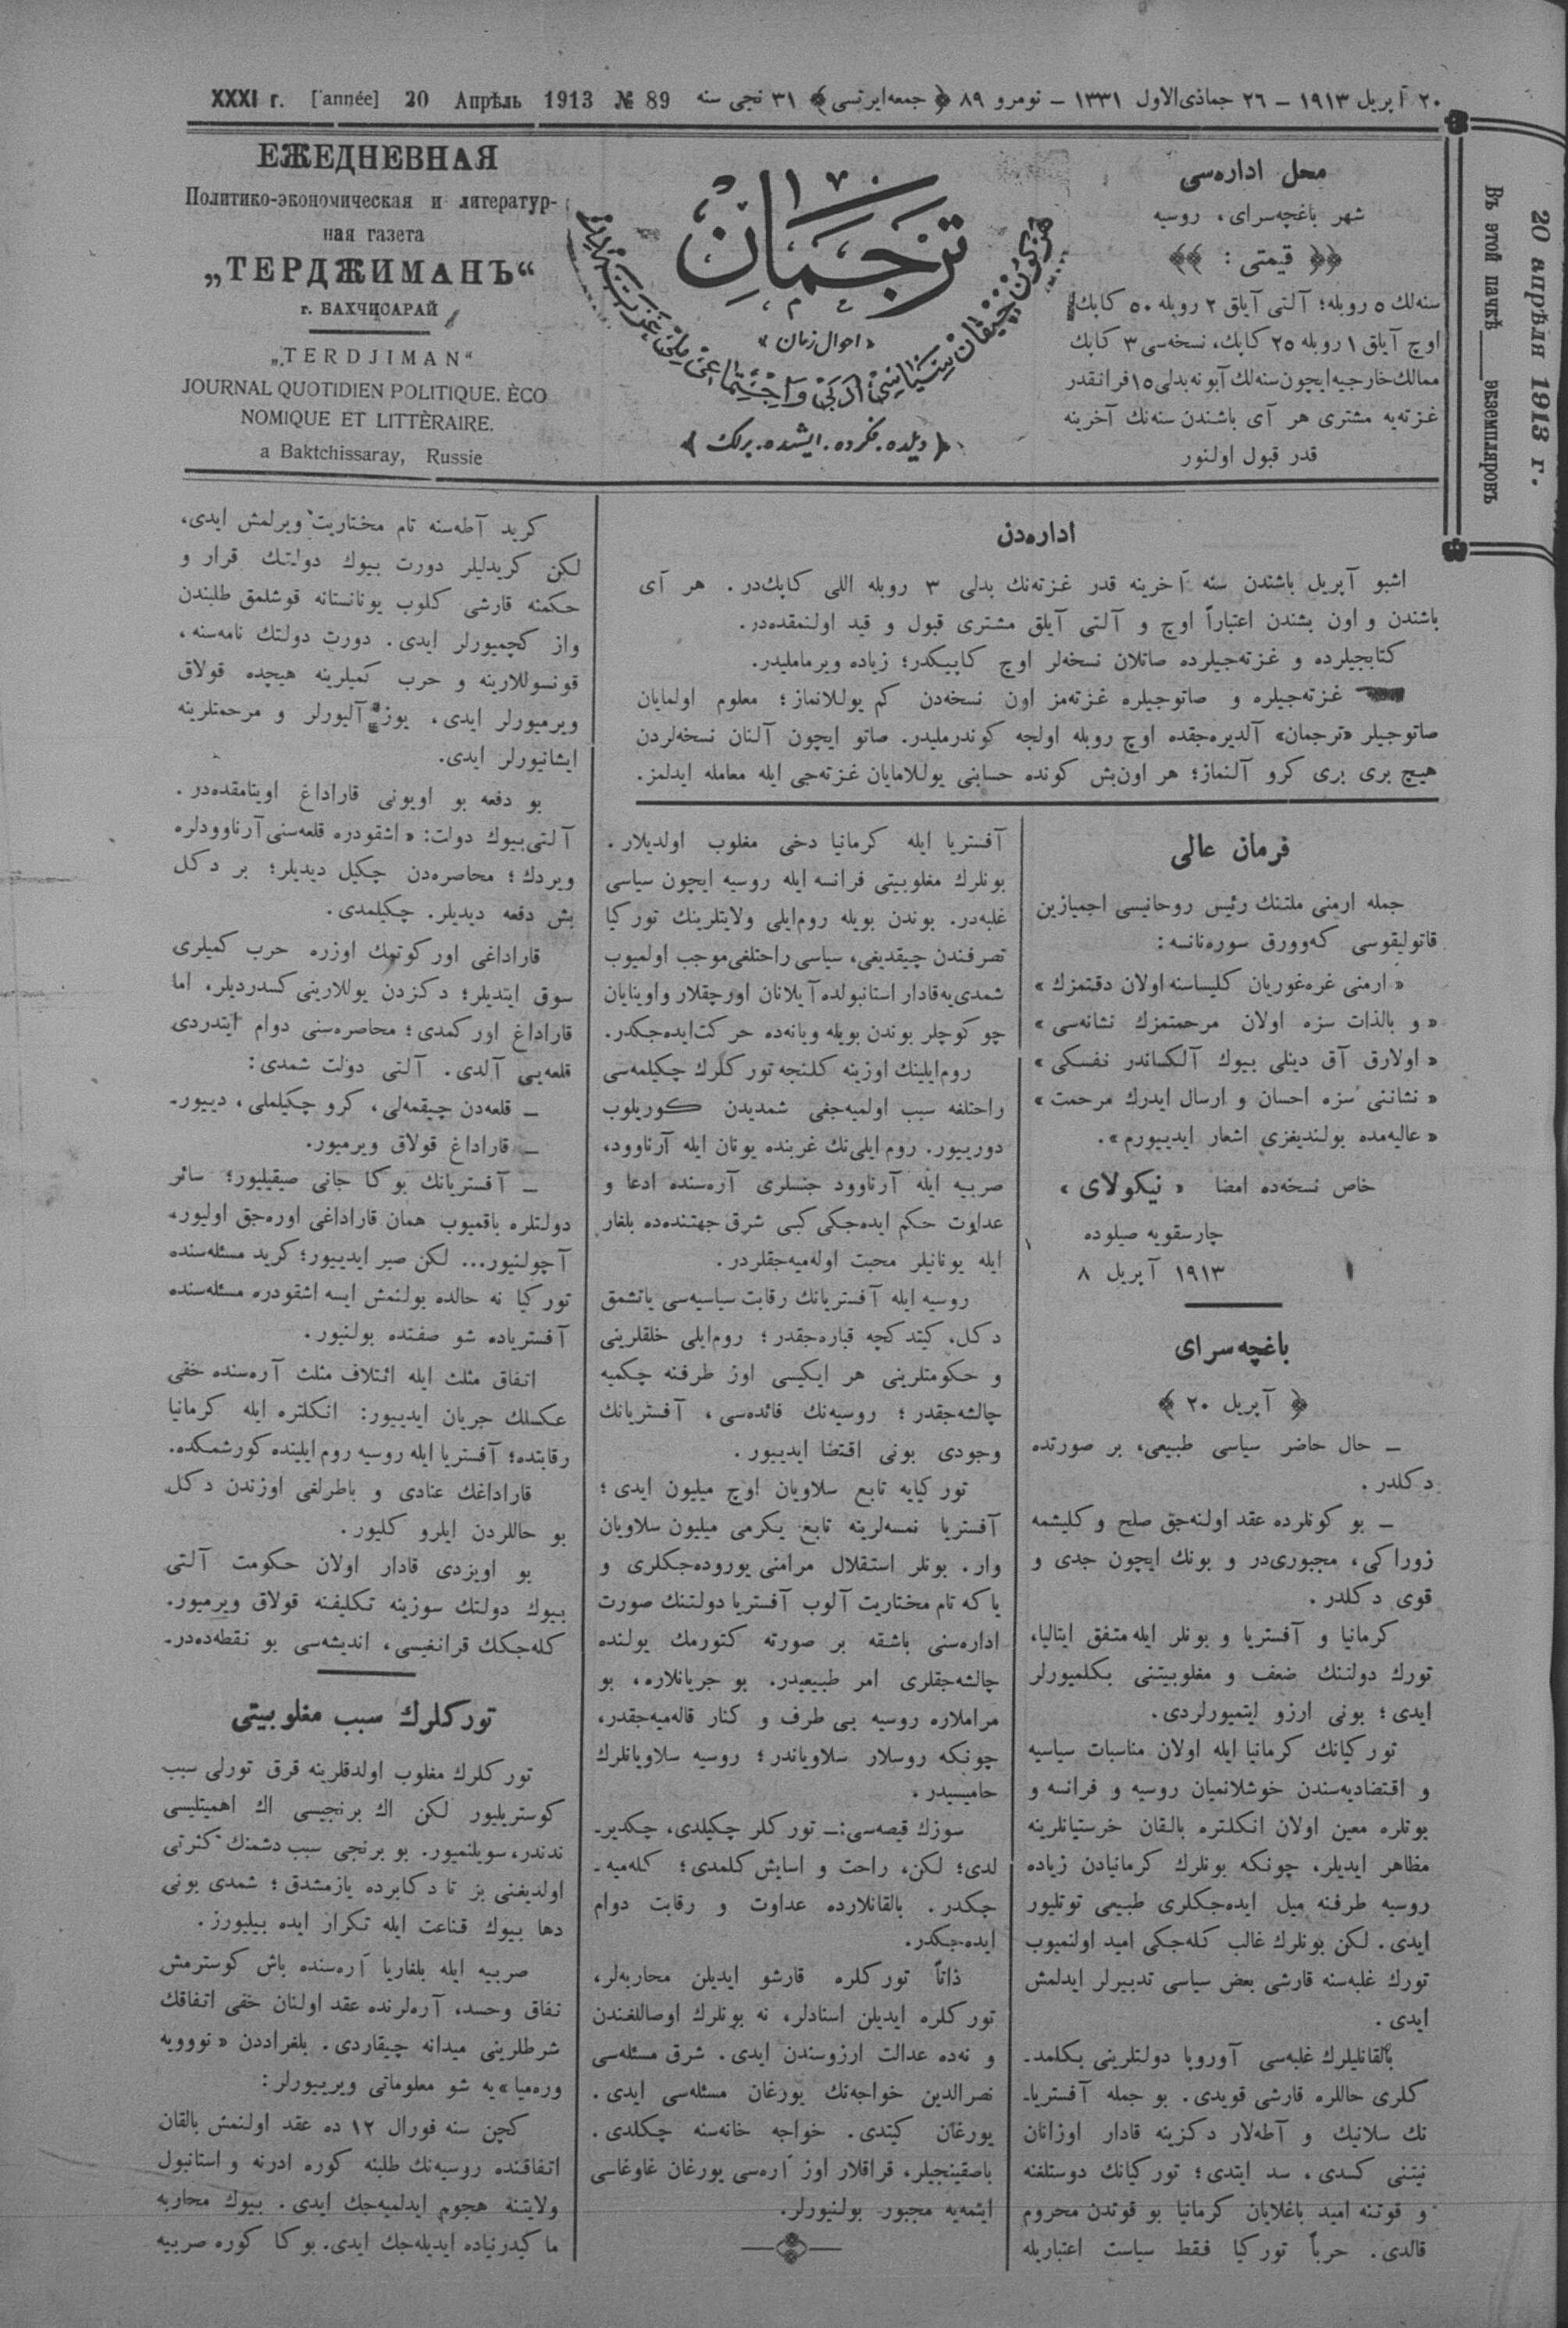 XXXI г. [année] 20 Апрѣль 1913 № 89 ٢٠ آپریل ١٩١٣ – ٢٦ جماذی‌الاول ١٣٣١ – نومرو ٨٩ ﴿ جمعه‌ایرتسی ﴾ ٣١ نجی سنه
ЕЖЕДНЕВНАЯ
Политико-экономическая и литератур-
ная газета
„ТЕРДЖИМАНЪ“
г. БАХЧИСАРАЙ
„TERDJIMAN“
JOURNAL QUOTIDIEN POLITIQUE. ÈCO
NOMIQUE ET LITTÈRAIRE.
a Baktchissaray, Russie
ترجمان
« احوال زمان »
﴿ دیلده. فکرده. ایشده. برلك ﴾
محل اداره‌سی
شهر باغچه‌سرای، روسیه
﴿﴿ قیمتی : ﴾﴾
سنه‌لك ٥ روبله؛ آلتی آیلق ٢ روبله ٥٠ كاپك
اوچ آیلق ١ روبله ٢٥ كاپك، نسخه‌سی ٣ كاپك
ممالك خارجیه‌ایچون سنه‌لك آبونه‌بدلی ١٥ فرانقدر
غزته‌یه مشتری هر آی باشندن سنه‌نك آخرینه
قدر قبول اولنور
Въ этой пачкѣ ____ экземпляровъ
20 апрѣля 1913 г.
اداره‌دن
اشبو آپریل باشندن سنه آخرینه قدر غزته‌نك بدلی ٣ روبله اللی كاپك‌در. هر آی
باشندن و اون بشندن اعتباراً اوچ و آلتی آیلق مشتری قبول و قید اولنمقده‌در.
كتابجیلرده و غزته‌جیلرده صاتلان نسخه‌لر اوچ كاپیكدر؛ زیاده ویرماملیدر.
غزته‌جیلره و صاتوجیلره غزته‌مز اون نسخه‌دن كم یوللانماز؛ معلوم اولمایان
صاتوجیلر «ترجمان» آلدیره‌جقده اوچ روبله اولجه كوندرملیدر. صاتو ایچون آلنان نسخه‌لردن
هیچ بری بری كرو آلنماز؛ هر اون‌بش كونده حسابنی یوللامایان غزته‌جی ایله معامله ایدلمز.
فرمان عالی
جمله ارمنی ملتنك رئیس روحانیسی اجمیازین
قاتولیقوسی كه‌وورق سوره‌نانسه :
« ارمنی غره‌غوریان كلیساسنه اولان دقتمزك »
« و بالذات سزه اولان مرحمتمزك نشانه‌سی »
« اولارق آق دینلی بیوك آلكساندر نفسكی »
« نشاننی سزه احسان و ارسال ایدرك مرحمت »
« عالیه‌مده بولندیغزی اشعار ایدییورم ».
خاص نسخه‌ده امضا « نیكولای »
چارسقویه صیلوده
١٩١٣ آپریل ٨
باغچه سرای
﴿ آپریل ٢٠ ﴾
– حال حاضر سیاسی طبیعی، بر صورتده
دكلدر.
– بو كونلرده عقد اولنه‌جق صلح و كلیشمه
زوراكی، مجبوری‌در و بونك ایچون جدی و
قوی دكلدر.
كرمانیا و آفستریا و بونلر ایله متفق ایتالیا،
تورك دولتنك ضعف و مغلوبیتنی بكلمیورلر
ایدی؛ بونی ارزو ایتمیورلردی.
توركیانك كرمانیا ایله اولان مناسبات سیاسیه
و اقتضادیه‌سندن خوشلانمیان روسیه و فرانسه و
بونلره معین اولان انكلتره بالقان خرستیانلرینه
مظاهر ایدیلر، چونكه بونلرك كرمانیادن زیاده
روسیه طرفنه میل ایده‌جكلری طبیعی توتلیور
ایدی. لكن بونلرك غالب كله‌جكی امید اولنمیوب
تورك غلبه‌سنه قارشی بعض سیاسی تدبیرلر ایدلمش
ایدی.
بالقانلیلرك غلبه‌سی آوروپا دولتلرینی بكلمد-
كلری حاللره قارشی قویدی. بو جمله آفستریا-
نك سلانیك و آطه‌لار دكزینه قادار اوزانان
نیتنی كسدی، سد ایتدی؛ توركیانك دوستلغنه
و قوتنه امید باغلایان كرمانیا بو قوتدن محروم
قالدی. حرباً توركیا فقط سیاست اعتباریله
آفستریا ایله كرمانیا دخی مغلوب اولدیلار.
بونلرك مغلوبیتی فرانسه ایله روسیه ایچون سیاسی
غلبه‌در. بوندن بویله روم‌ایلی ولایتلرینك توركیا
تصرفندن چیقدیغی، سیاسی راحتلغی‌موجب اولمیوب
شمدی‌یه‌قادار استانبولده آیلانان اورچقلار واوینایان
چوكوچلر بوندن بویله ویانه‌ده حركت‌ایده‌جكدر.
روم‌ایلینك اوزینه كلنجه توركلرك چكیلمه‌سی
راحتلغه سبب اولمیه‌جغی شمدیدن كوریلوب
دورییور. روم ایلی‌نك غربنده یونان ایله آرناوود،
صربیه ایله آرناوود جنسلری آره‌سنده ادعا و
عداوت حكم ایده‌جكی كبی شرق جهتنده‌ده بلغار
ایله یونانیلر محبت اوله‌میه‌جقلردر.
روسیه ایله آفستریانك رقابت سیاسیه‌سی یاتشمق
دكل، كیتدكچه قباره‌جقدر؛ روم‌ایلی خلقلرینی
و حكومتلرینی هر ایكیسی اوز طرفنه چكمیه
چالشه‌جقدر؛ روسیه‌نك فائده‌سی، آفستریانك
وجودی بونی اقتضا ایدییور.
توركیایه تابع سلاویان اوچ میلیون ایدی؛
آفستریا نمسه‌لرینه تابع یكرمی میلیون سلاویان
وار. بونلر استقلال مرامنی یوروده‌جكلری و
یاكه تام مختاریت آلوب آفستریا دولتنك صورت
اداره‌سنی باشقه بر صورته كتورمك یولنده
چالشه‌جقلری امر طبیعیدر. بو جریانلاره، بو
مراملاره روسیه بی طرف و كنار قاله‌میه‌جقدر،
چونكه روسلار سلاویاندر؛ روسیه سلاویانلرك
حامیسیدر.
سوزك قیصه‌سی:– توركلر چكیلدی، چكدیر-
لدی؛ لكن، راحت و اسایش كلمدی؛ كله‌میه-
جكدر. بالقانلارده عداوت و رقابت دوام
ایده‌جكدر.
ذاتاً توركلره قارشو ایدیلن محاربه‌لر،
توركلره ایدیلن اسنادلر، نه بونلرك اوصاللغندن
و نه‌ده عدالت ارزوسندن ایدی. شرق مسئله‌سی
نصرالدین خواجه‌نك یورغان مسئله‌سی ایدی.
یورغان كیتدی. خواجه خانه‌سنه چكلدی.
باصقینجیلر، قراقلار اوز آره‌سی یورغان غاوغاسی
ایتمه‌یه مجبور بولنیورلر.
كرید آطه‌سنه تام مختاریت ویرلمش ایدی،
لكن كریدلیلر دورت بیوك دولتك قرار و
حكمنه قارشی كلوب یونانستانه قوشلمق طلبندن
واز كچمیورلر ایدی. دورت دولتك نامه‌سنه،
قونسوللارینه و حرب كمیلرینه هیچده قولاق
ویرمیورلر ایدی، یوز آلیورلر و مرحمتلرینه
ایشانیورلر ایدی.
بو دفعه بو اویونی قاراداغ اوینامقده‌در.
آلتی بیوك دولت: « اشقودره قلعه‌سنی آرناوودلره
ویردك؛ محاصره‌دن چكیل دیدیلر؛ بر دكل
بش دفعه دیدیلر. چكیلمدی.
قاراداغی اوركوتمك اوزره حرب كمیلری
سوق ایتدیلر؛ دكزدن یوللارینی كسدردیلر، اما
قاراداغ اوركمدی؛ محاصره‌سنی دوام ایتدردی
قلعه‌یی آلدی. آلتی دولت شمدی :
– قلعه‌دن چیقمه‌لی، كرو چكیلملی، دییور-
– قاراداغ قولاق ویرمیور.
– آفستریانك بوكا جانی صیقیلیور؛ سائر
دولتلره باقمیوب همان قاراداغی اوره‌جق اولیور،
آچولنیور... لكن صبر ایدییور؛ كرید مسئله‌سنده
توركیا نه حالده بولنمش ایسه اشقودره مسئله‌سنده
آفستریاده شو صفتده بولنیور.
اتفاق مثلث ایله ائتلاف مثلث آره‌سنده خفی
عكسلك جریان ایدییور: انكلتره ایله كرمانیا
رقابتده؛ آفستریا ایله روسیه روم ایلینده كورشمكده.
قاراداغك عنادی و باطرلغی اوزندن دكل
بو حاللردن ایلرو كلیور.
بو اویزدی قادار اولان حكومت آلتی
بیوك دولتك سوزینه تكلیفنه قولاق ویرمیور.
كله‌جكك قرانغیسی، اندیشه‌سی بو نقطه‌ده‌در-
توركلرك سبب مغلوبیتی
توركلرك مغلوب اولدقلرینه قرق تورلی سبب
كوستریلیور لكن اك برنجیسی اك اهمیتلیسی
ندندر، سویلنمیور. بو برنجی سبب دشمنك كثرتی
اولدیغنی بز تا دكابرده یازمشدق؛ شمدی بونی
دها بیوك قناعت ایله تكرار ایده بیلیورز.
صربیه ایله بلغاریا آره‌سنده باش كوسترمش
نفاق وحسد، آره‌لرنده عقد اولنان خفی اتفاقك
شرطلرینی میدانه چیقاردی. بلغراددن « نووویه
وره‌میا »یه شو معلوماتی ویرییورلر :
كچن سنه فورال ١٢ ده عقد اولنمش بالقان
اتفاقنده روسیه‌نك طلبنه كوره ادرنه و استانبول
ولایتنه هجوم ایدلمیه‌جك ایدی. بیوك محاربه
ماكیدرنیاده ایدیله‌جك ایدی. بوكا كوره صربیه